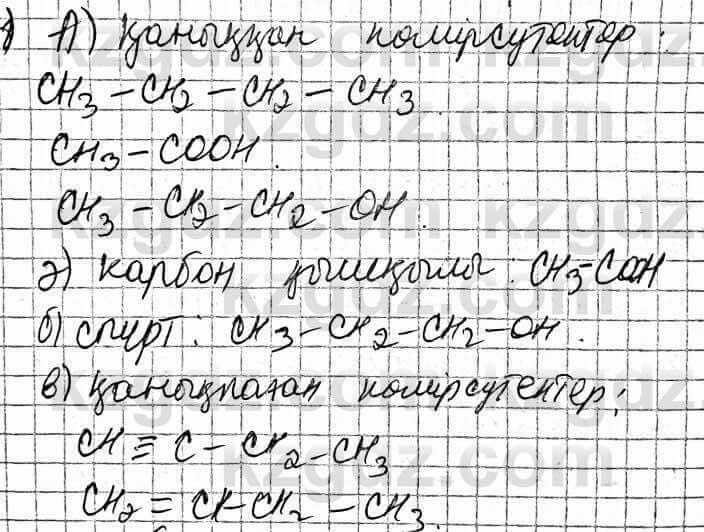 1) А) Қаныққан көмірсутектер:
CH3 – CH2 – CH2 – CH3.
CH3 – COOH.
CH3 – CH2 – CH2 – OH.
ә) карбон қышқылы: CH3-COOH
б) спирт: CH3 – CH2 – CH2 – OH.
в) қанықпаған көмірсутектер:
CH ≡ C – CH2 – CH3
CH2 = CH-CH2 – CH3.